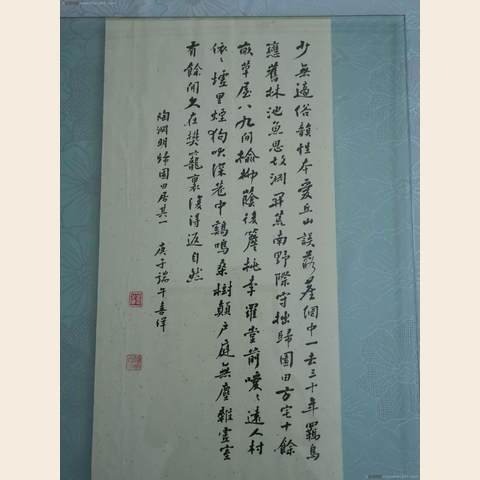 少無適俗韻性本愛丘山誤落塵網中一去三十年羈鳥
戀舊林池魚思故淵開荒南野際守拙歸園田方宅十餘
畝草屋八九間榆柳蔭後簷桃李羅堂前曖〻遠人村
依〻墟里煙狗吠深巷中鷄鳴桑樹顛戶庭無塵雜虛室
有餘閒久在樊籠裏復得返自然
陶淵明歸園田居其一 庚子端午喜